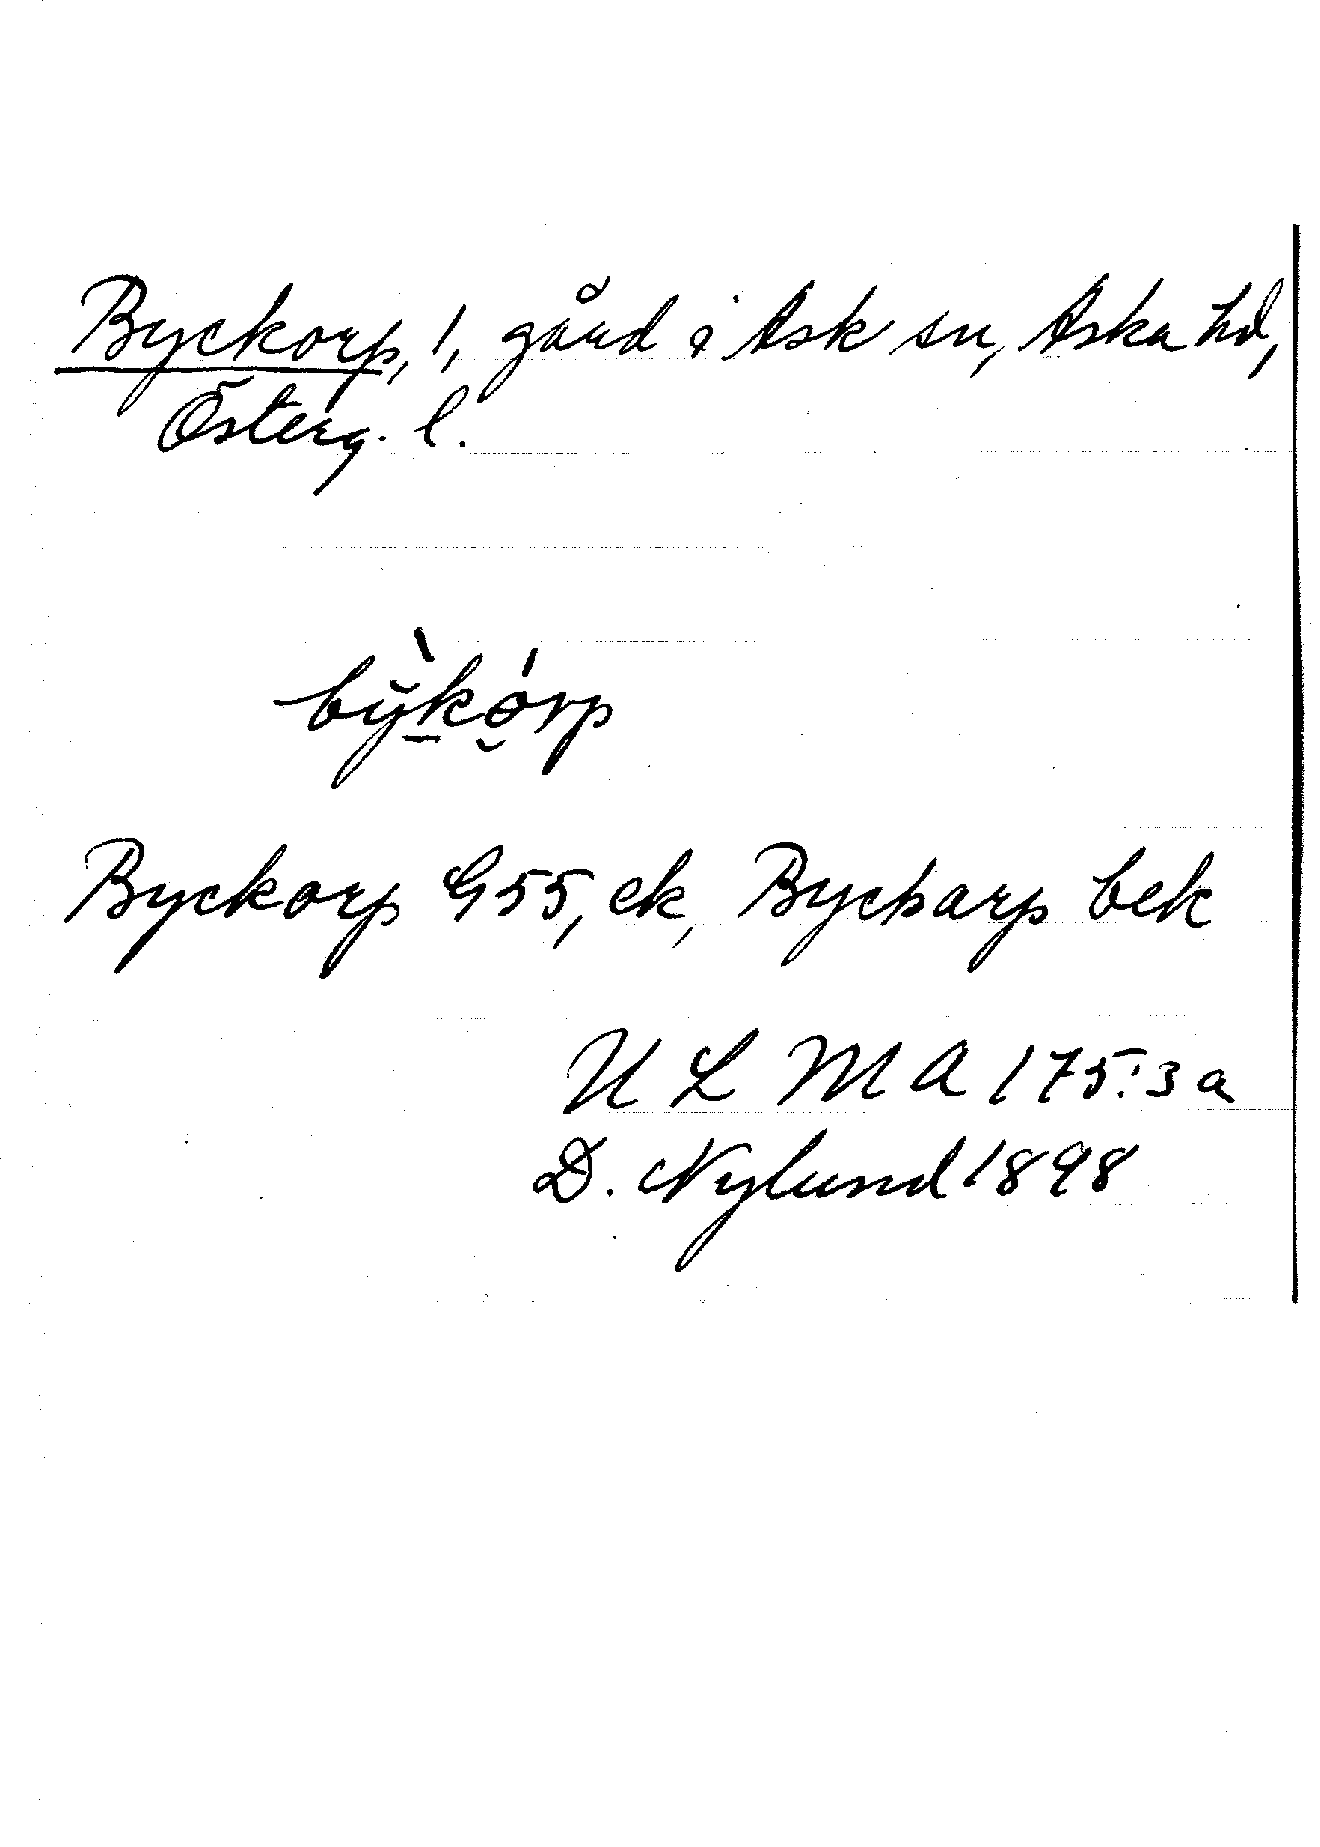 Byckorp, 1, gård i Ask sn, Aska hd,
Österg. l.
by̆̀kó̯rp
Byckorp G55, ek, Byckarp bek
ULMA 175:3a
D. Nylund 1898